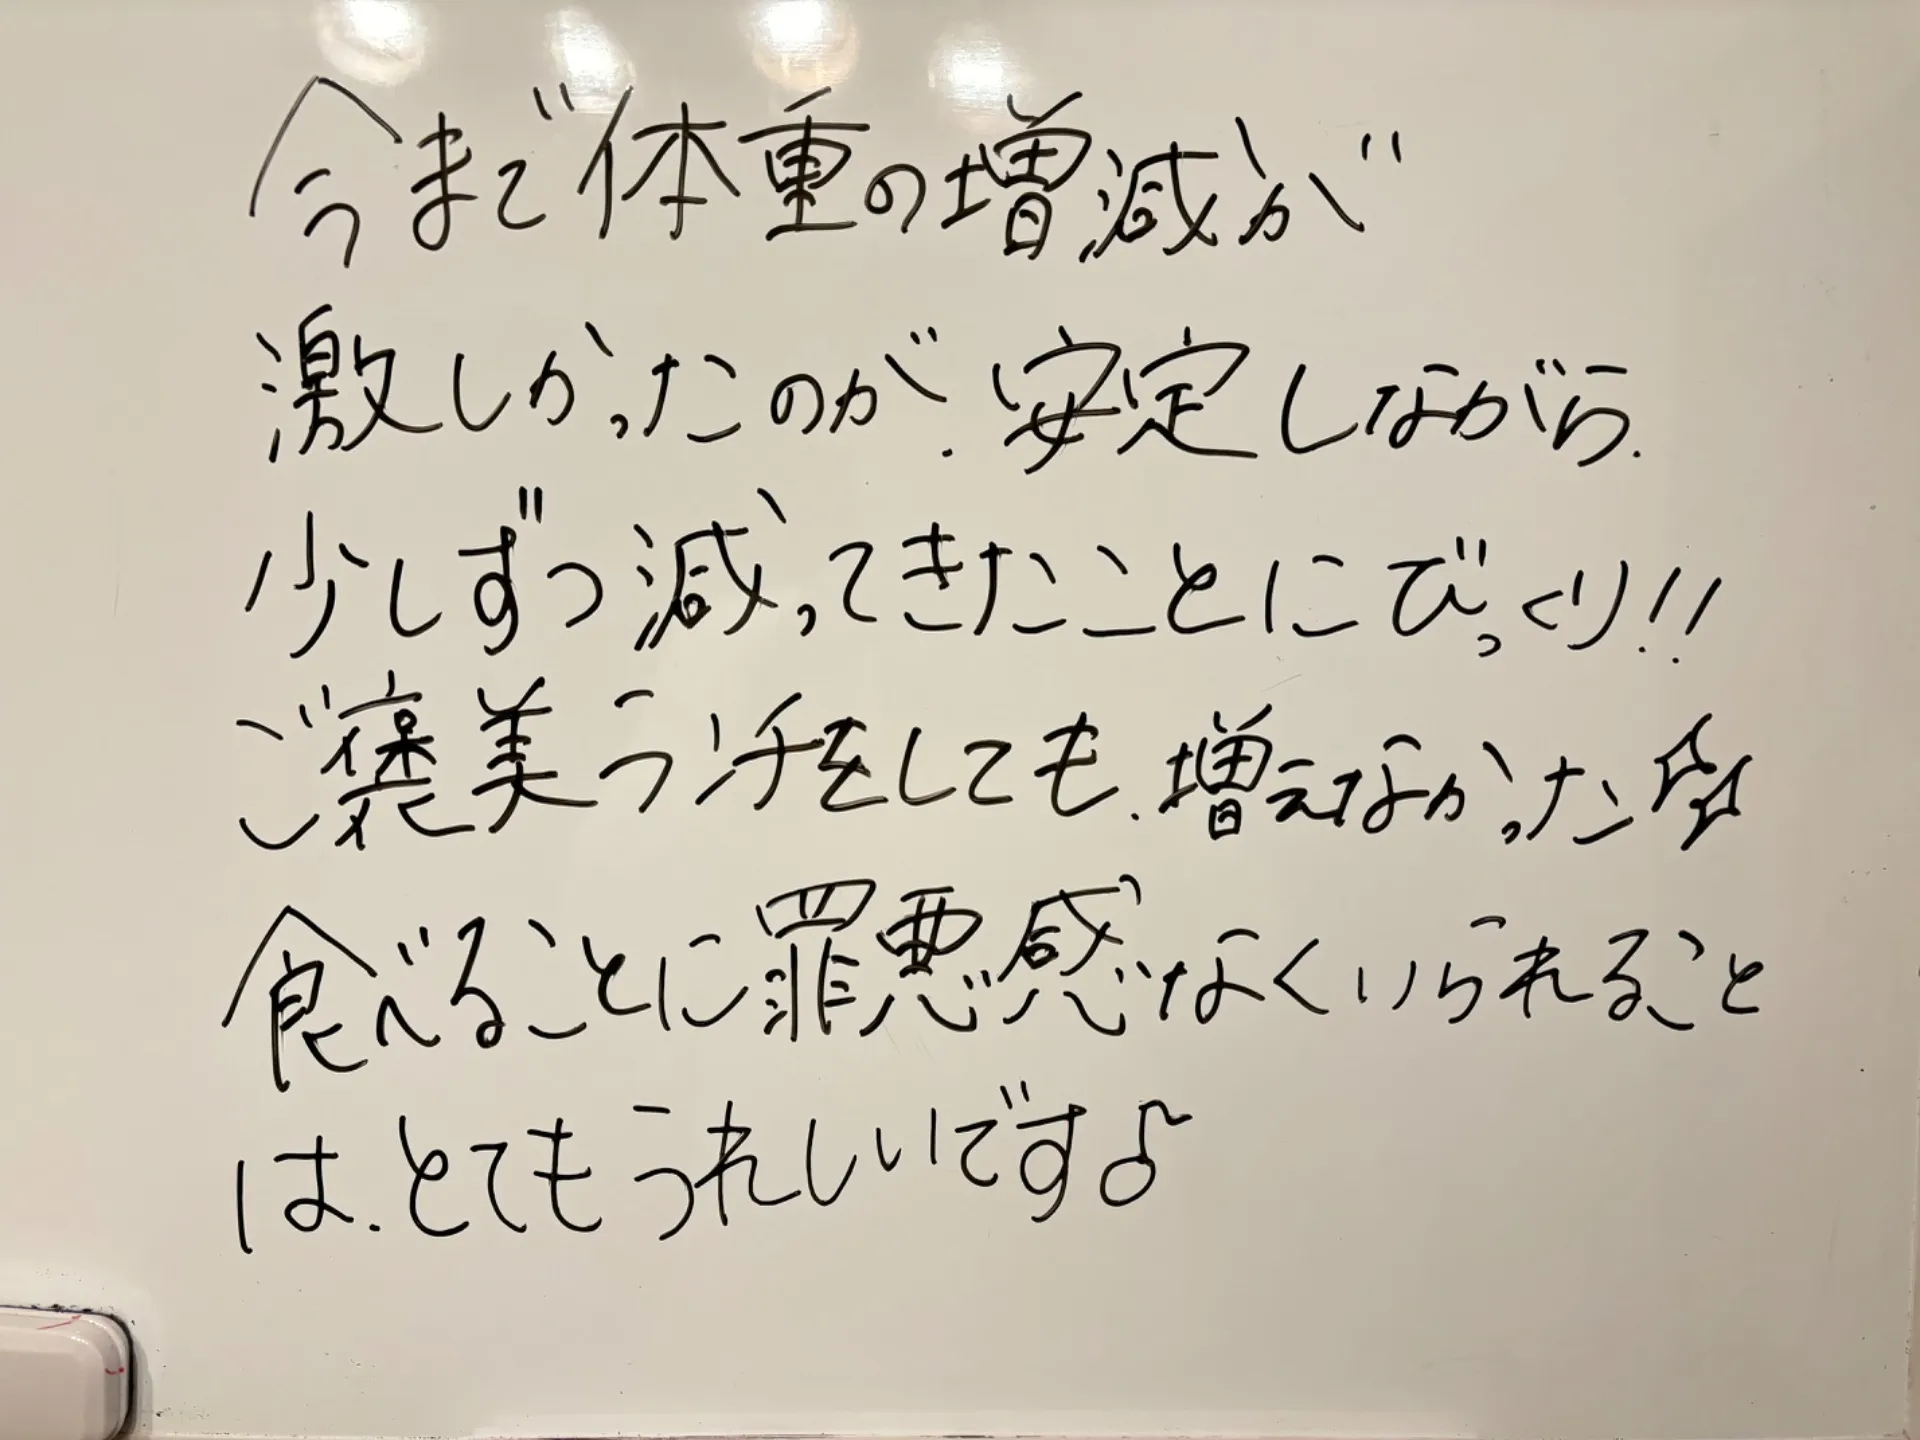 今まで体重の増減が
激しかったのが、安定しながら、
少しずつ減ってきたことにびっくり!!
ご褒美ランチをしても、増えなかった☆☆
食べることに罪悪感なくいられること
は、とてもうれしいです♪